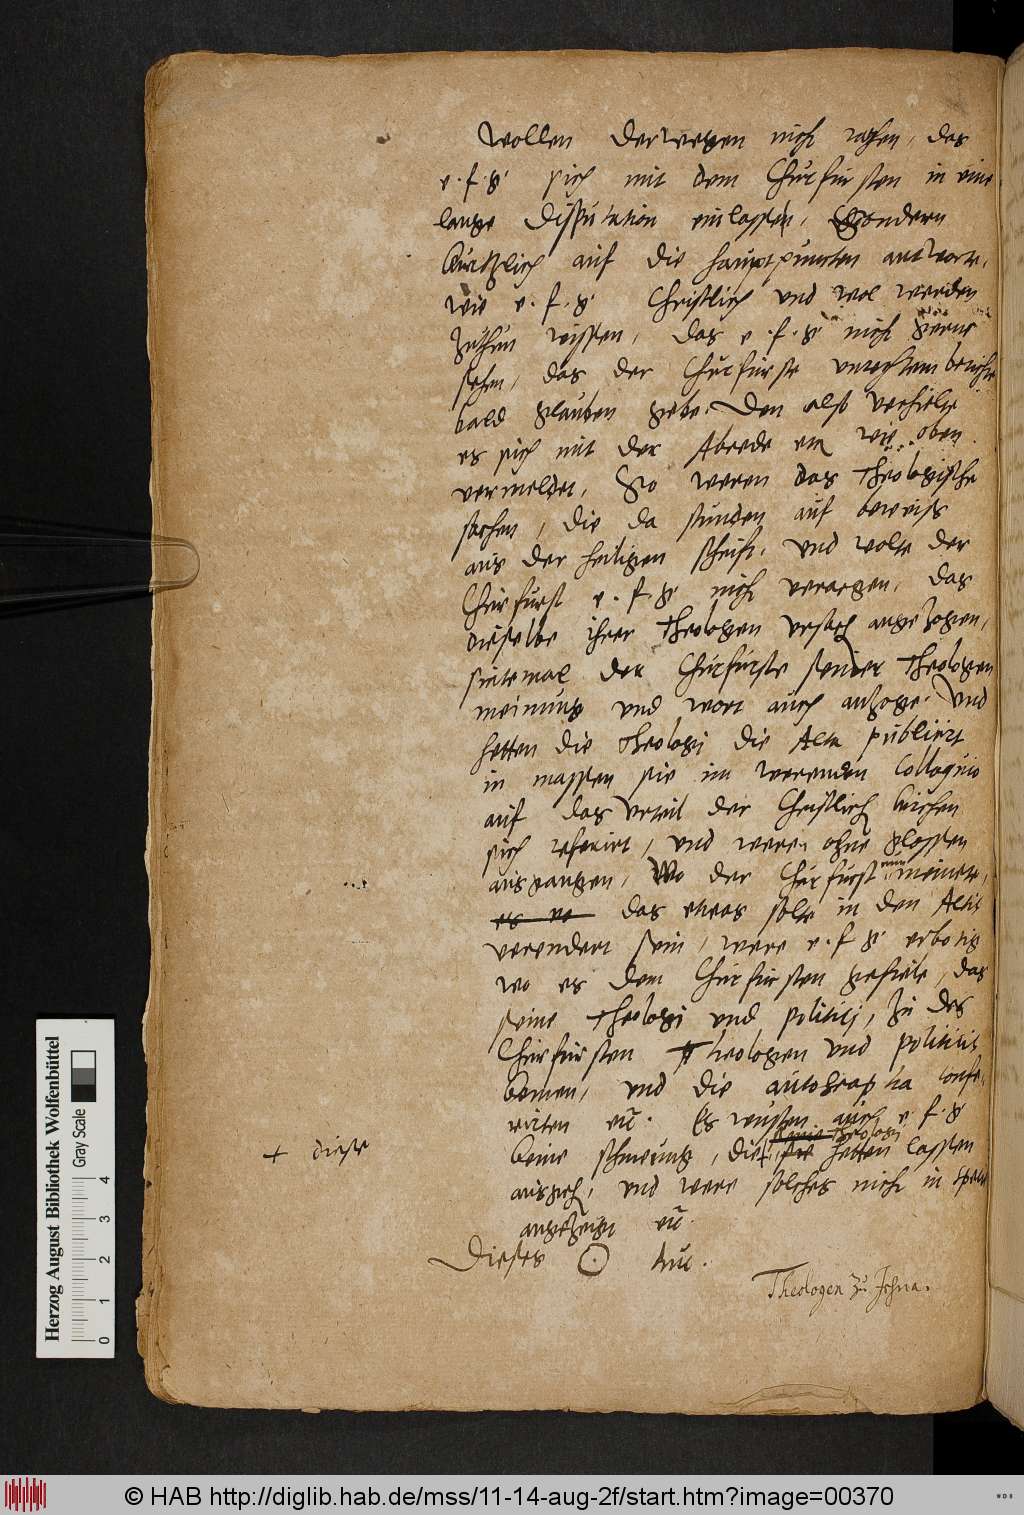 Wollen derwegen nicht rathen, das
e. f. g. sich mit dem Churfursten in eine
lange disputation einlassen, sondern
kurtzlich auf die hauptpuncten antworte,
wie e. f. g. Christlich und wol werden
zuthun wissen, das e. f. g. nicht gerne
sehen, das der Churfurste unrechtem berichte
bald glauben gebe. Den also verhielte
es sich mit der Abrede etc wie oben
vermeldet, So weren das Theologische
sachen, die da stunden auf beweiss
aus der heiligen schrift, und wolte der
Churfurst e. f. g. nicht verargen, das
dieselbe ihrer Theologen ursach angezogen,
sintemal der Churfurste seiner Theologen
meinung und wort auch anzoge. Und
hetten die Theologi die Acta publicirt
in massen sie im werenden Colloquio
auf das urteil der Christlich kirchen
sich referirt, und weren ohne glossen
ausgangen, Wo der Churfurst nun meinete,
es wo das etwas solte in den Actis
verendert sein, were e. f. g. erbotig
wo es dem Churfursten gefiele, das
seine Theologi und politici, zu des
Churfursten Theologen und politicis
kemen, und die autographa confe-
rirten etc. Es wusten auch e. f. g.
keine schmeung, die + sie seine Theologi hetten lassen
ausgeh, und were solches nicht in specie
angezeigt etc.
+ diese
Dieses ⊙
Theologen zu Jehna.
Herzog August Bibliothek Wolfenbüttel
Gray Scale
0 1 2 3 4
© HAB http://diglib.hab.de/mss/11-14-aug-2f/start.htm?image=00370